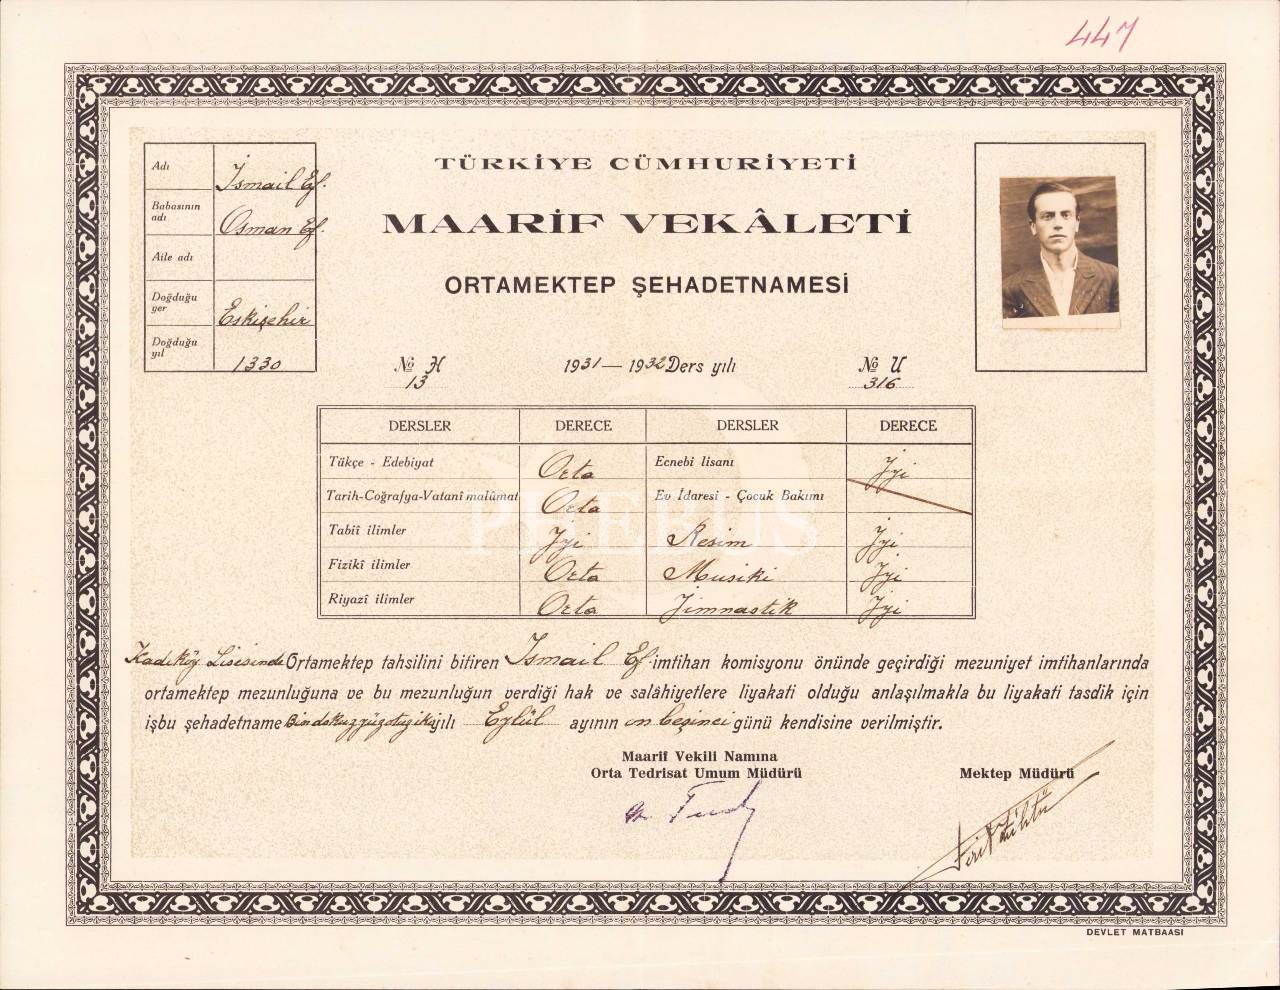 447
TÜRKİYE CÜMHURİYETİ
MAARİF VEKÂLETİ
ORTAMEKTEP ŞEHADETNAMESİ
Adı İsmail Ef.
Babasının adı Osman Ef.
Aile adı
Doğduğu yer Eskişehir
Doğduğu yıl 1330
№ H 13
1931 — 1932 Ders yılı
№ U 316
DERSLER DERECE DERSLER DERECE
Tükçe - Edebiyat Orta Ecnebi lisanı İyi
Tarih-Coğrafya-Vatanî malûmat Orta Ev İdaresi - Çocuk Bakımı
Tabiî ilimler İyi Resim İyi
Fizikî ilimler Orta Musiki İyi
Riyazî ilimler Orta Jimnastik İyi
PHEBUS
Kadıköy Lisesinde Ortamektep tahsilini bitiren İsmail Ef. imtihan komisyonu önünde geçirdiği mezuniyet imtihanlarında
ortamektep mezunluğuna ve bu mezunluğun verdiği hak ve salâhiyetlere liyakati olduğu anlaşılmakla bu liyakati tasdik için
işbu şehadetname Bindokuzyüzotuziki yılı Eylül ayının on beşinci günü kendisine verilmiştir.
Maarif Vekili Namına
Orta Tedrisat Umum Müdürü
Mektep Müdürü
DEVLET MATBAASI